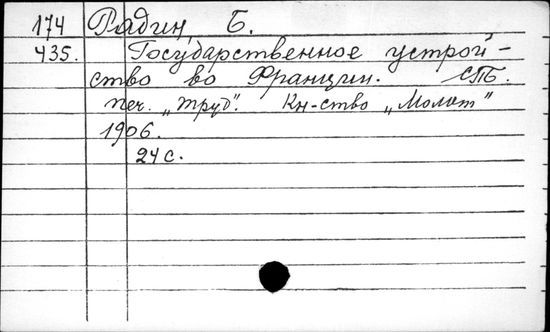 174 Радин, Б.
435. Государственное устрой-
ство во Франции. СПБ.
печ. „Труд". Кн-ство „Молот"
1906.
24 с.